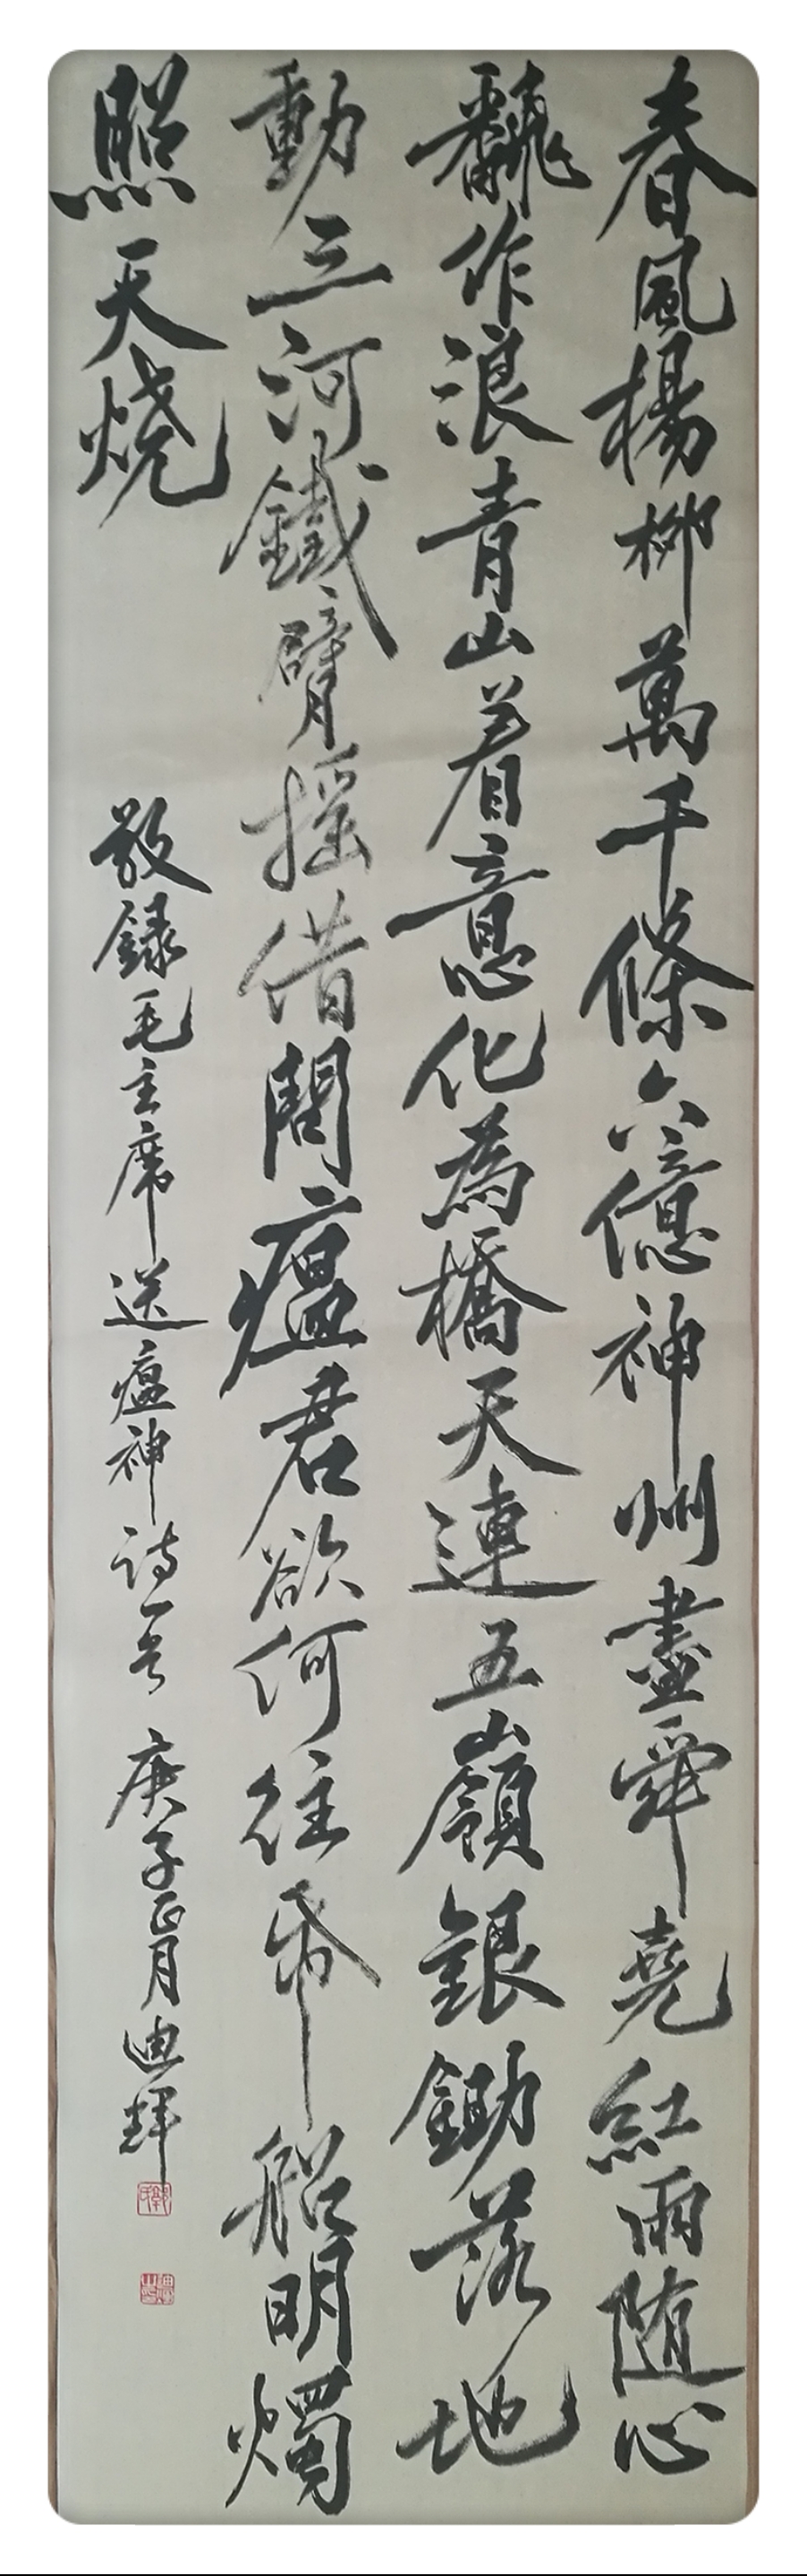 春風楊柳萬千條六億神州盡舜堯紅雨随心
飜作浪青山着意化為橋天連五嶺銀鋤落地
動三河鐵臂摇借問瘟君欲何往帋船明燭
照天烧
敬録毛主席送瘟神诗一首 庚子正月迪輝